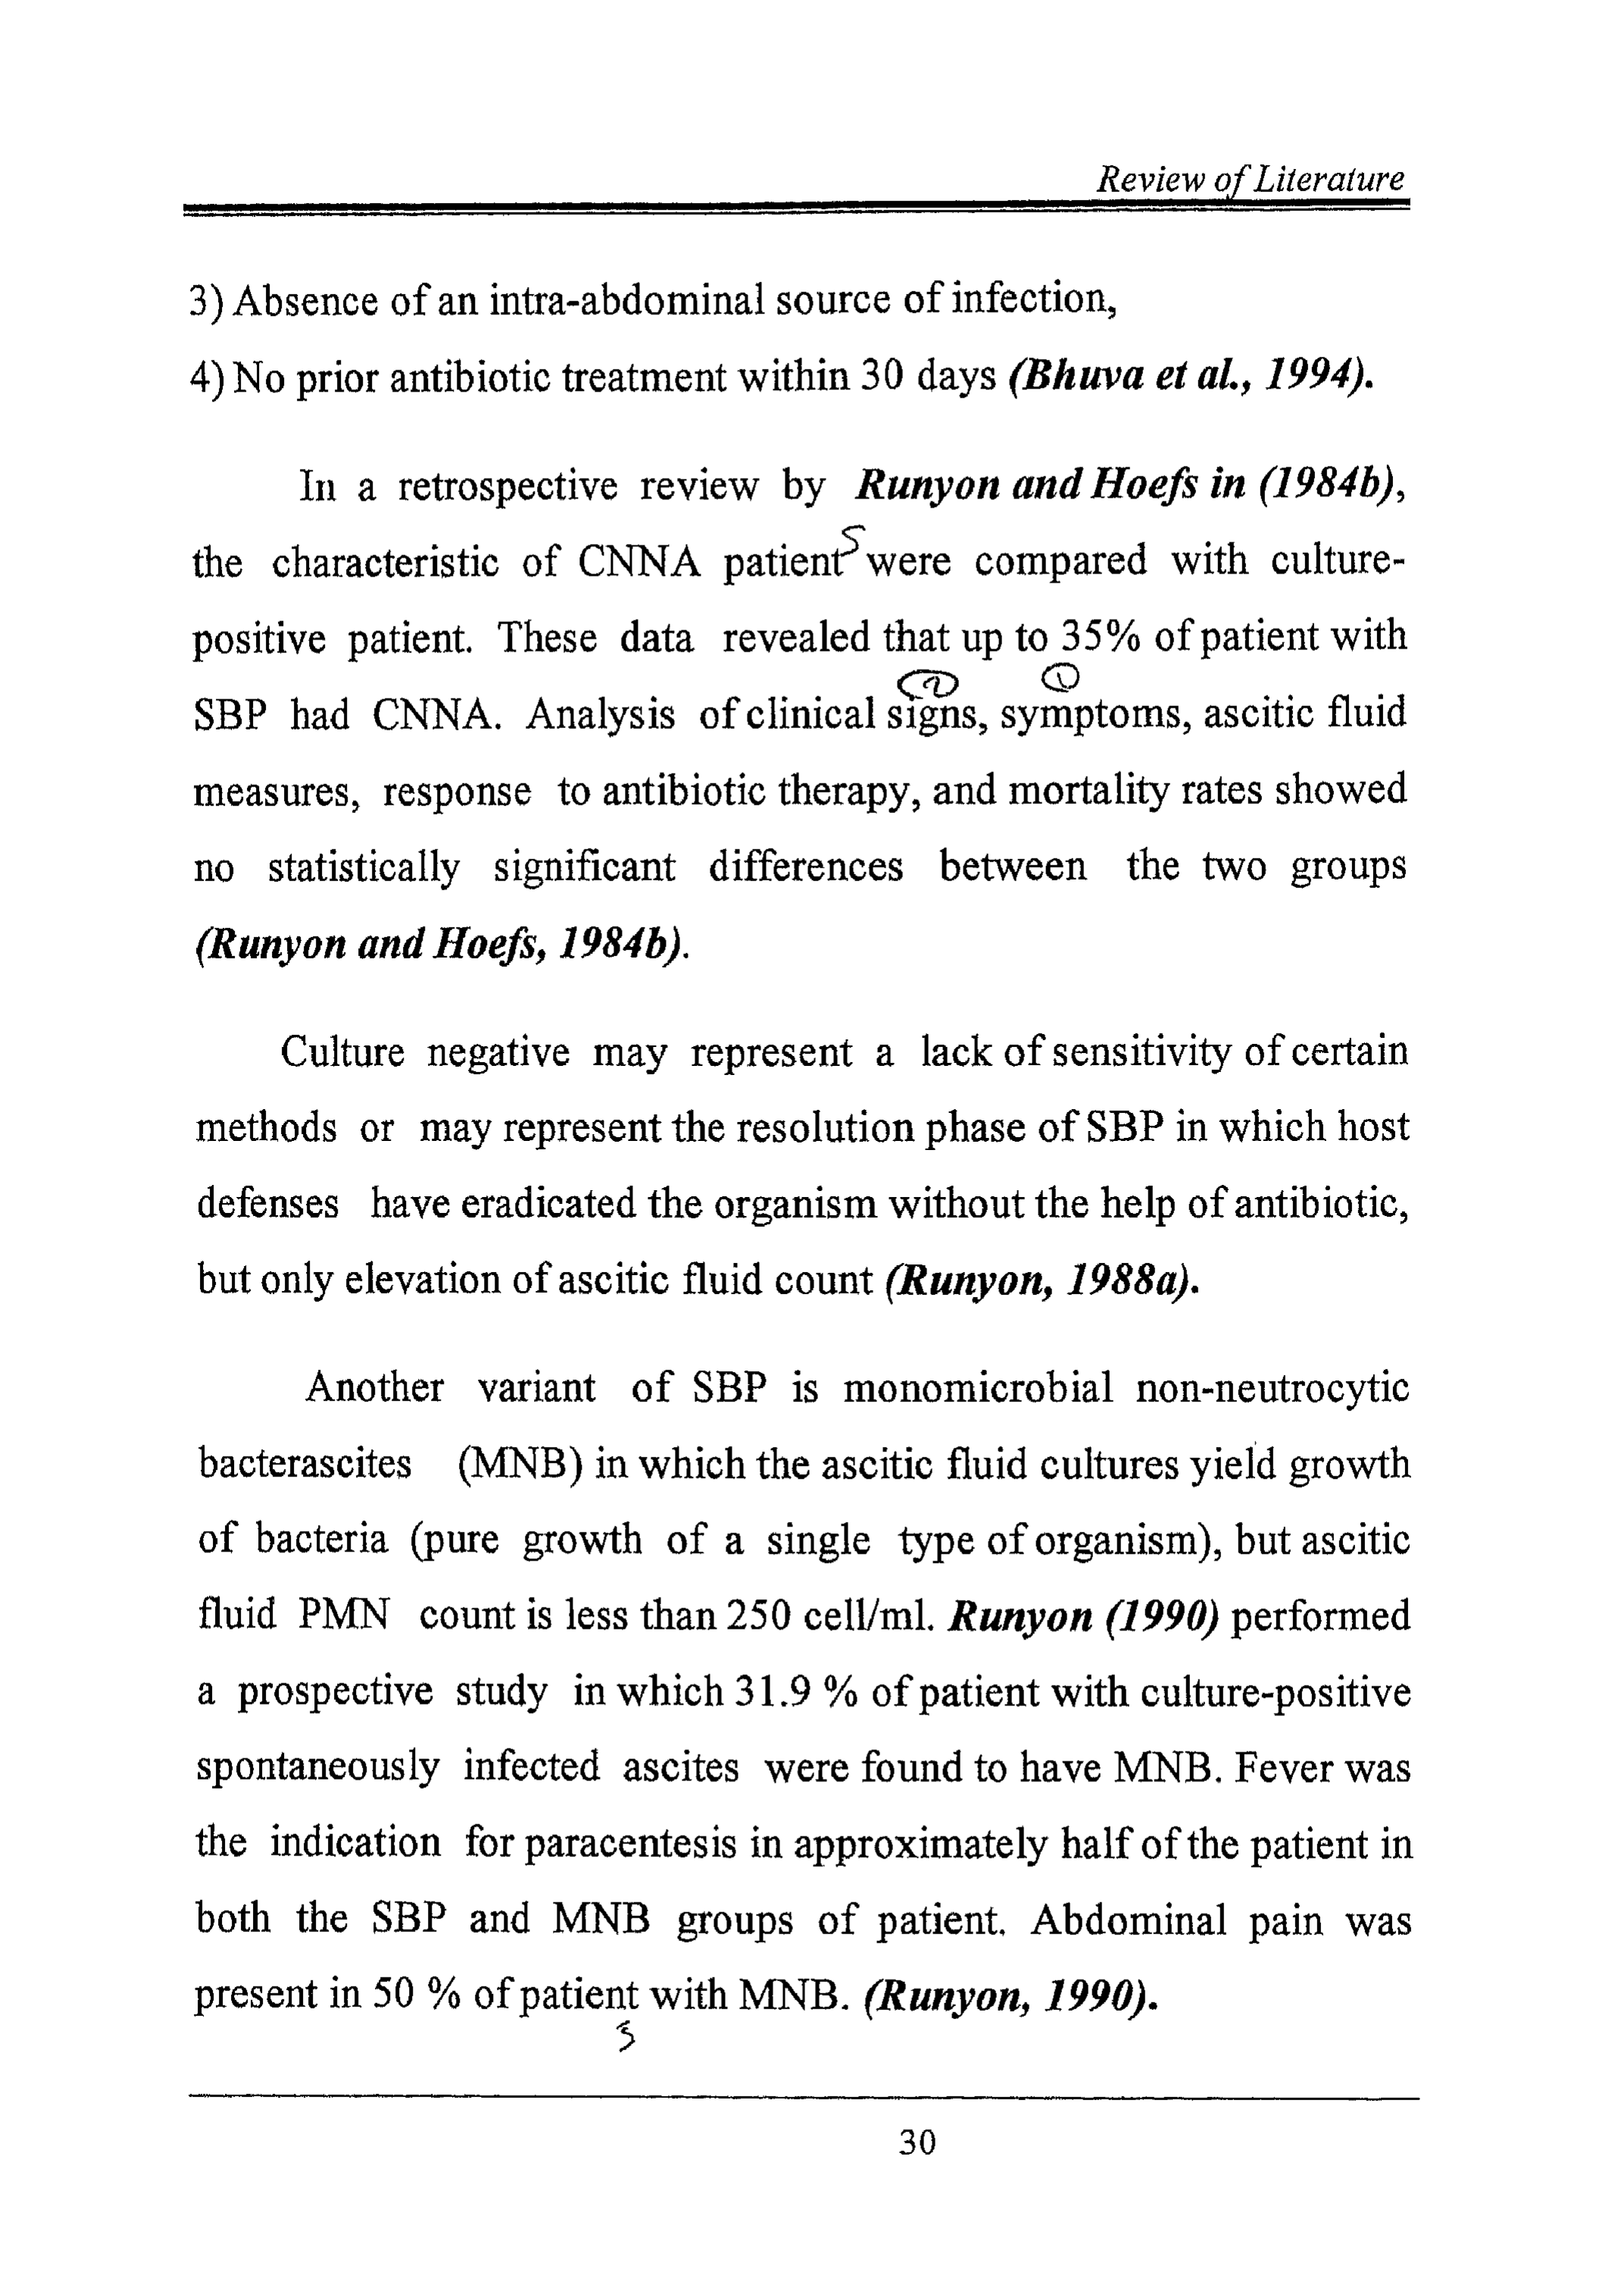 Review of Literature
3) Absence of an intra-abdominal source of infection,
4) No prior antibiotic treatment within 30 days (Bhuva et al., 1994).
In a retrospective review by Runyon and Hoefs in (1984b),
the characteristic of CNNA patients were compared with culture-
positive patient. These data revealed that up to 35% of patient with
② ①
SBP had CNNA. Analysis of clinical signs, symptoms, ascitic fluid
measures, response to antibiotic therapy, and mortality rates showed
no statistically significant differences between the two groups
(Runyon and Hoefs, 1984b).
Culture negative may represent a lack of sensitivity of certain
methods or may represent the resolution phase of SBP in which host
defenses have eradicated the organism without the help of antibiotic,
but only elevation of ascitic fluid count (Runyon, 1988a).
Another variant of SBP is monomicrobial non-neutrocytic
bacterascites (MNB) in which the ascitic fluid cultures yield growth
of bacteria (pure growth of a single type of organism), but ascitic
fluid PMN count is less than 250 cell/ml. Runyon (1990) performed
a prospective study in which 31.9 % of patient with culture-positive
spontaneously infected ascites were found to have MNB. Fever was
the indication for paracentesis in approximately half of the patient in
both the SBP and MNB groups of patient. Abdominal pain was
present in 50 % of patient with MNB. (Runyon, 1990).
s
30